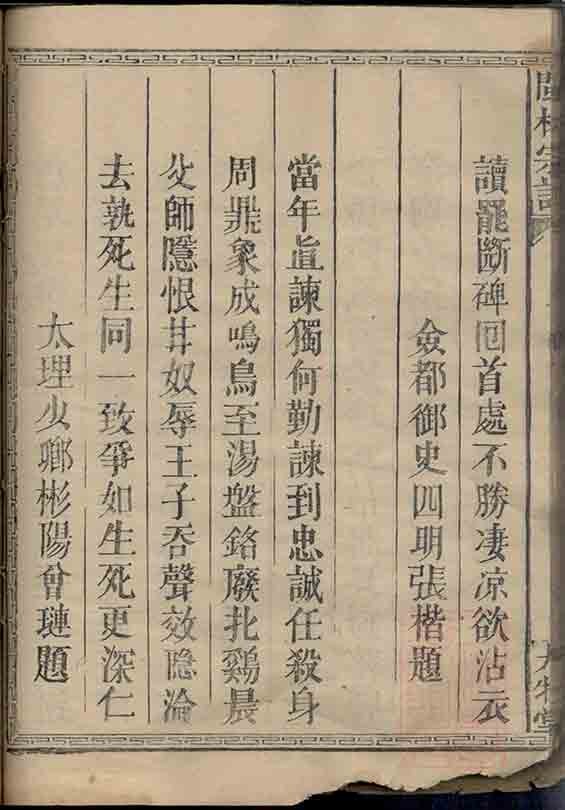 讀罷斷碑囘首處不勝淒凉欲沾衣
僉都御史四明張楷題
當年直諫獨何勤諫到忠誠任殺身
周鼎象成鳴鳥至湯盤銘廢牝鷄晨
父師隱恨甘奴辱王子吞聲效隐淪
去孰死生同一致爭如生死更深仁
太理少鄉彬陽會璉題
宗譜